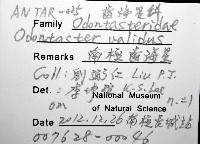 ANTAR-025 齒海星科
Family Odontasteridae
Odontaster validus
Remarks 南極齒海星
Coll: 劉弼仁 Liu P.J.
Det.: 李坤瑄 K-S. Lee
om National Museum n=1
of Natural Science
Date 2012.12.26 南極長城站
007628-00046